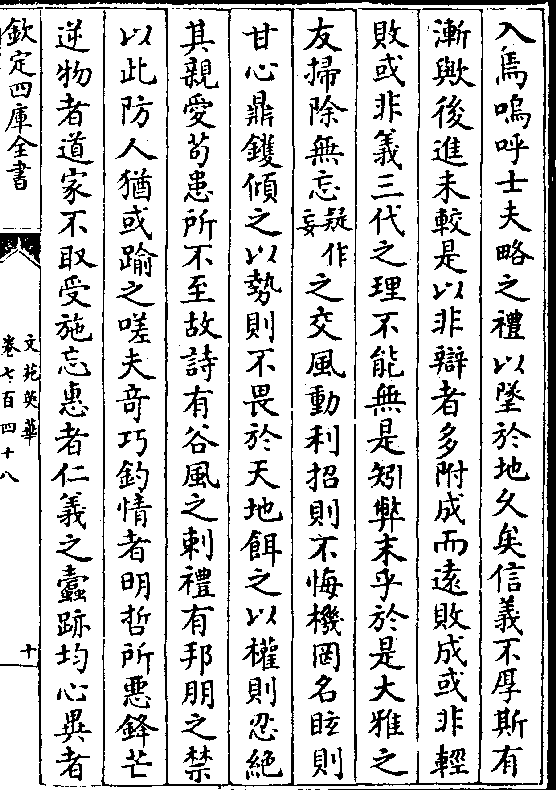 入焉嗚呼士夫略之禮以墜於地久矣信義不厚斯有
漸歟後進未較是以非辯者多附成而遠敗成或非輕
敗或非義三代之理不能無是矧弊末乎於是大雅之
友掃除無忘疑作妄之交風動利招則不悔機罔名眩則
甘心鼎鑊傾之以勢則不畏於天地餌之以權則忍絶
其親愛苟患所不至故詩有谷風之刺禮有邦朋之禁
以此防人猶或踰之嗟夫竒巧釣情者明哲所惡鋒芒
逆物者道家不取受施忘惠者仁義之蠧跡均心異者
欽定四庫全書
文苑英華
卷七百四十八
十